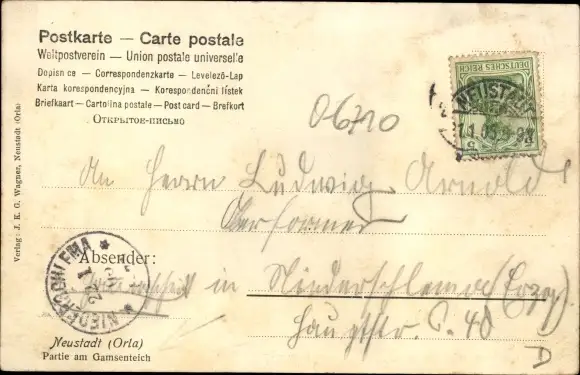 Postkarte — Carte postale
Weltpostverein — Union postale universelle
Dopisnce — Correspondenzkarte — Levelező-Lap
Karta korespondencyjna — Korespondenční lístek
Briefkaart — Cartolina postale — Post card — Brefkort
Открытое-письмо
DEUTSCHES REICH
NEUSTADT
06710
An Herrn Ludwig Arnold
Oberformer
Absender:
in Niederschlema (Erzg.)
Hauptstr. 40
NIEDERSCHLEMA
Neustadt (Orla)
Partie am Gamsenteich
D
Verlag: J. K. G. Wagner, Neustadt (Orla)